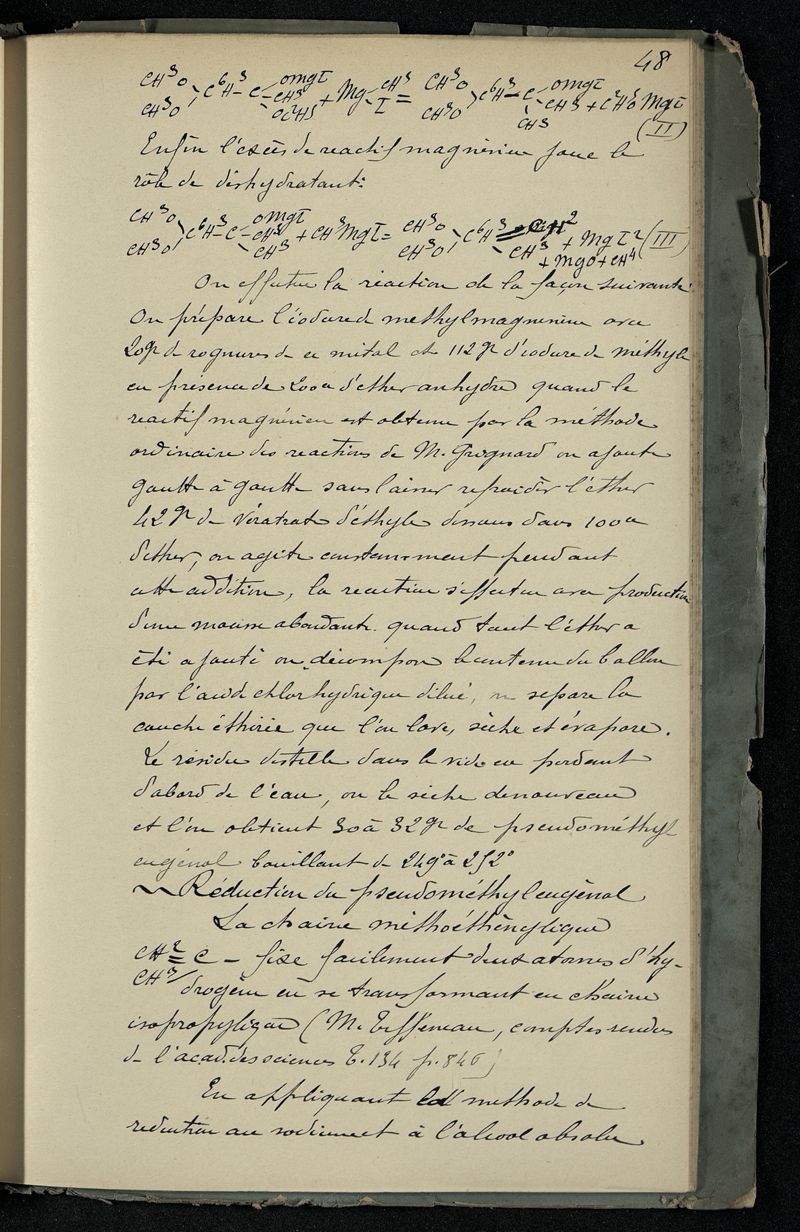 48
CH³O CH³O > C⁶H³ - C - OMgI CH³ OC²H⁵ + Mg CH³ I = CH³O CH³O > C⁶H³ - C OMgI CH³ CH³ + C²H⁵O MgI (II)
Enfin l'excès de reactif magnésien joue le
rôle de déshydratant:
CH³O CH³O > C⁶H³ - C - OMgI CH³ CH³ + CH³MgI = CH³O CH³O > C⁶H³ CH² CH³ + MgI² + MgO + CH⁴ (III)
On effectue la réaction de la façon suivante:
On prépare l'iodure de methylmagnésium avec
20gr de rognures de ce métal et 112gr d'iodure de méthyle
en présence de 200cc d'éther anhydre quand le
reactif magnésien est obtenu par la méthode
ordinaire des reactions de M. Grignard on ajoute
goutte à goutte sans laisser refroidir l'éther
42gr de Vératrate d'éthyle dissous dans 100cc
d'éther, on agite constamment pendant
cette addition, la reaction s'effectue avec production
d'une mousse abondante. quand tout l'éther a
été ajouté on décompose le contenu du ballon
par l'acide chlorhydrique dilué, on separe la
couche éthérée que l'on lave, sèche et évapore.
Le résidu distille dans le vide en perdant
d'abord de l'eau, on le sèche de nouveau
et l'on obtient 30 à 32gr de pseudométhyl
eugénol bouillant de 249° à 252°
~ Réduction du pseudométhyleugénol
La chaine méthoéthénylique
CH² = C - fixe facilement deux atomes d'hy-
CH³ / drogène en se transformant en chaine
isopropylique (M. Tiffeneau, comptes rendus
de l'acad. des sciences T. 134 p. 846)
En appliquant la methode de
reduction au sodium et à l'alcool absolu